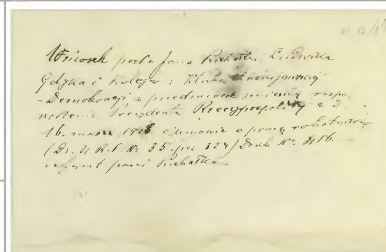 Wniosek posła Jana Ludwika
Gdyka i kolegów z Klubu Chrześcijańskiej
-Demokracji w przedmiocie zmiany rozpo-
rządzenia Prezydenta Rzeczypospolitej z d.
16. marca 1928 o umowie o pracę robotników
(Dz. U. R. P. Nr. 35. poz 324) Druk Nr.
referent poseł Puchałka.